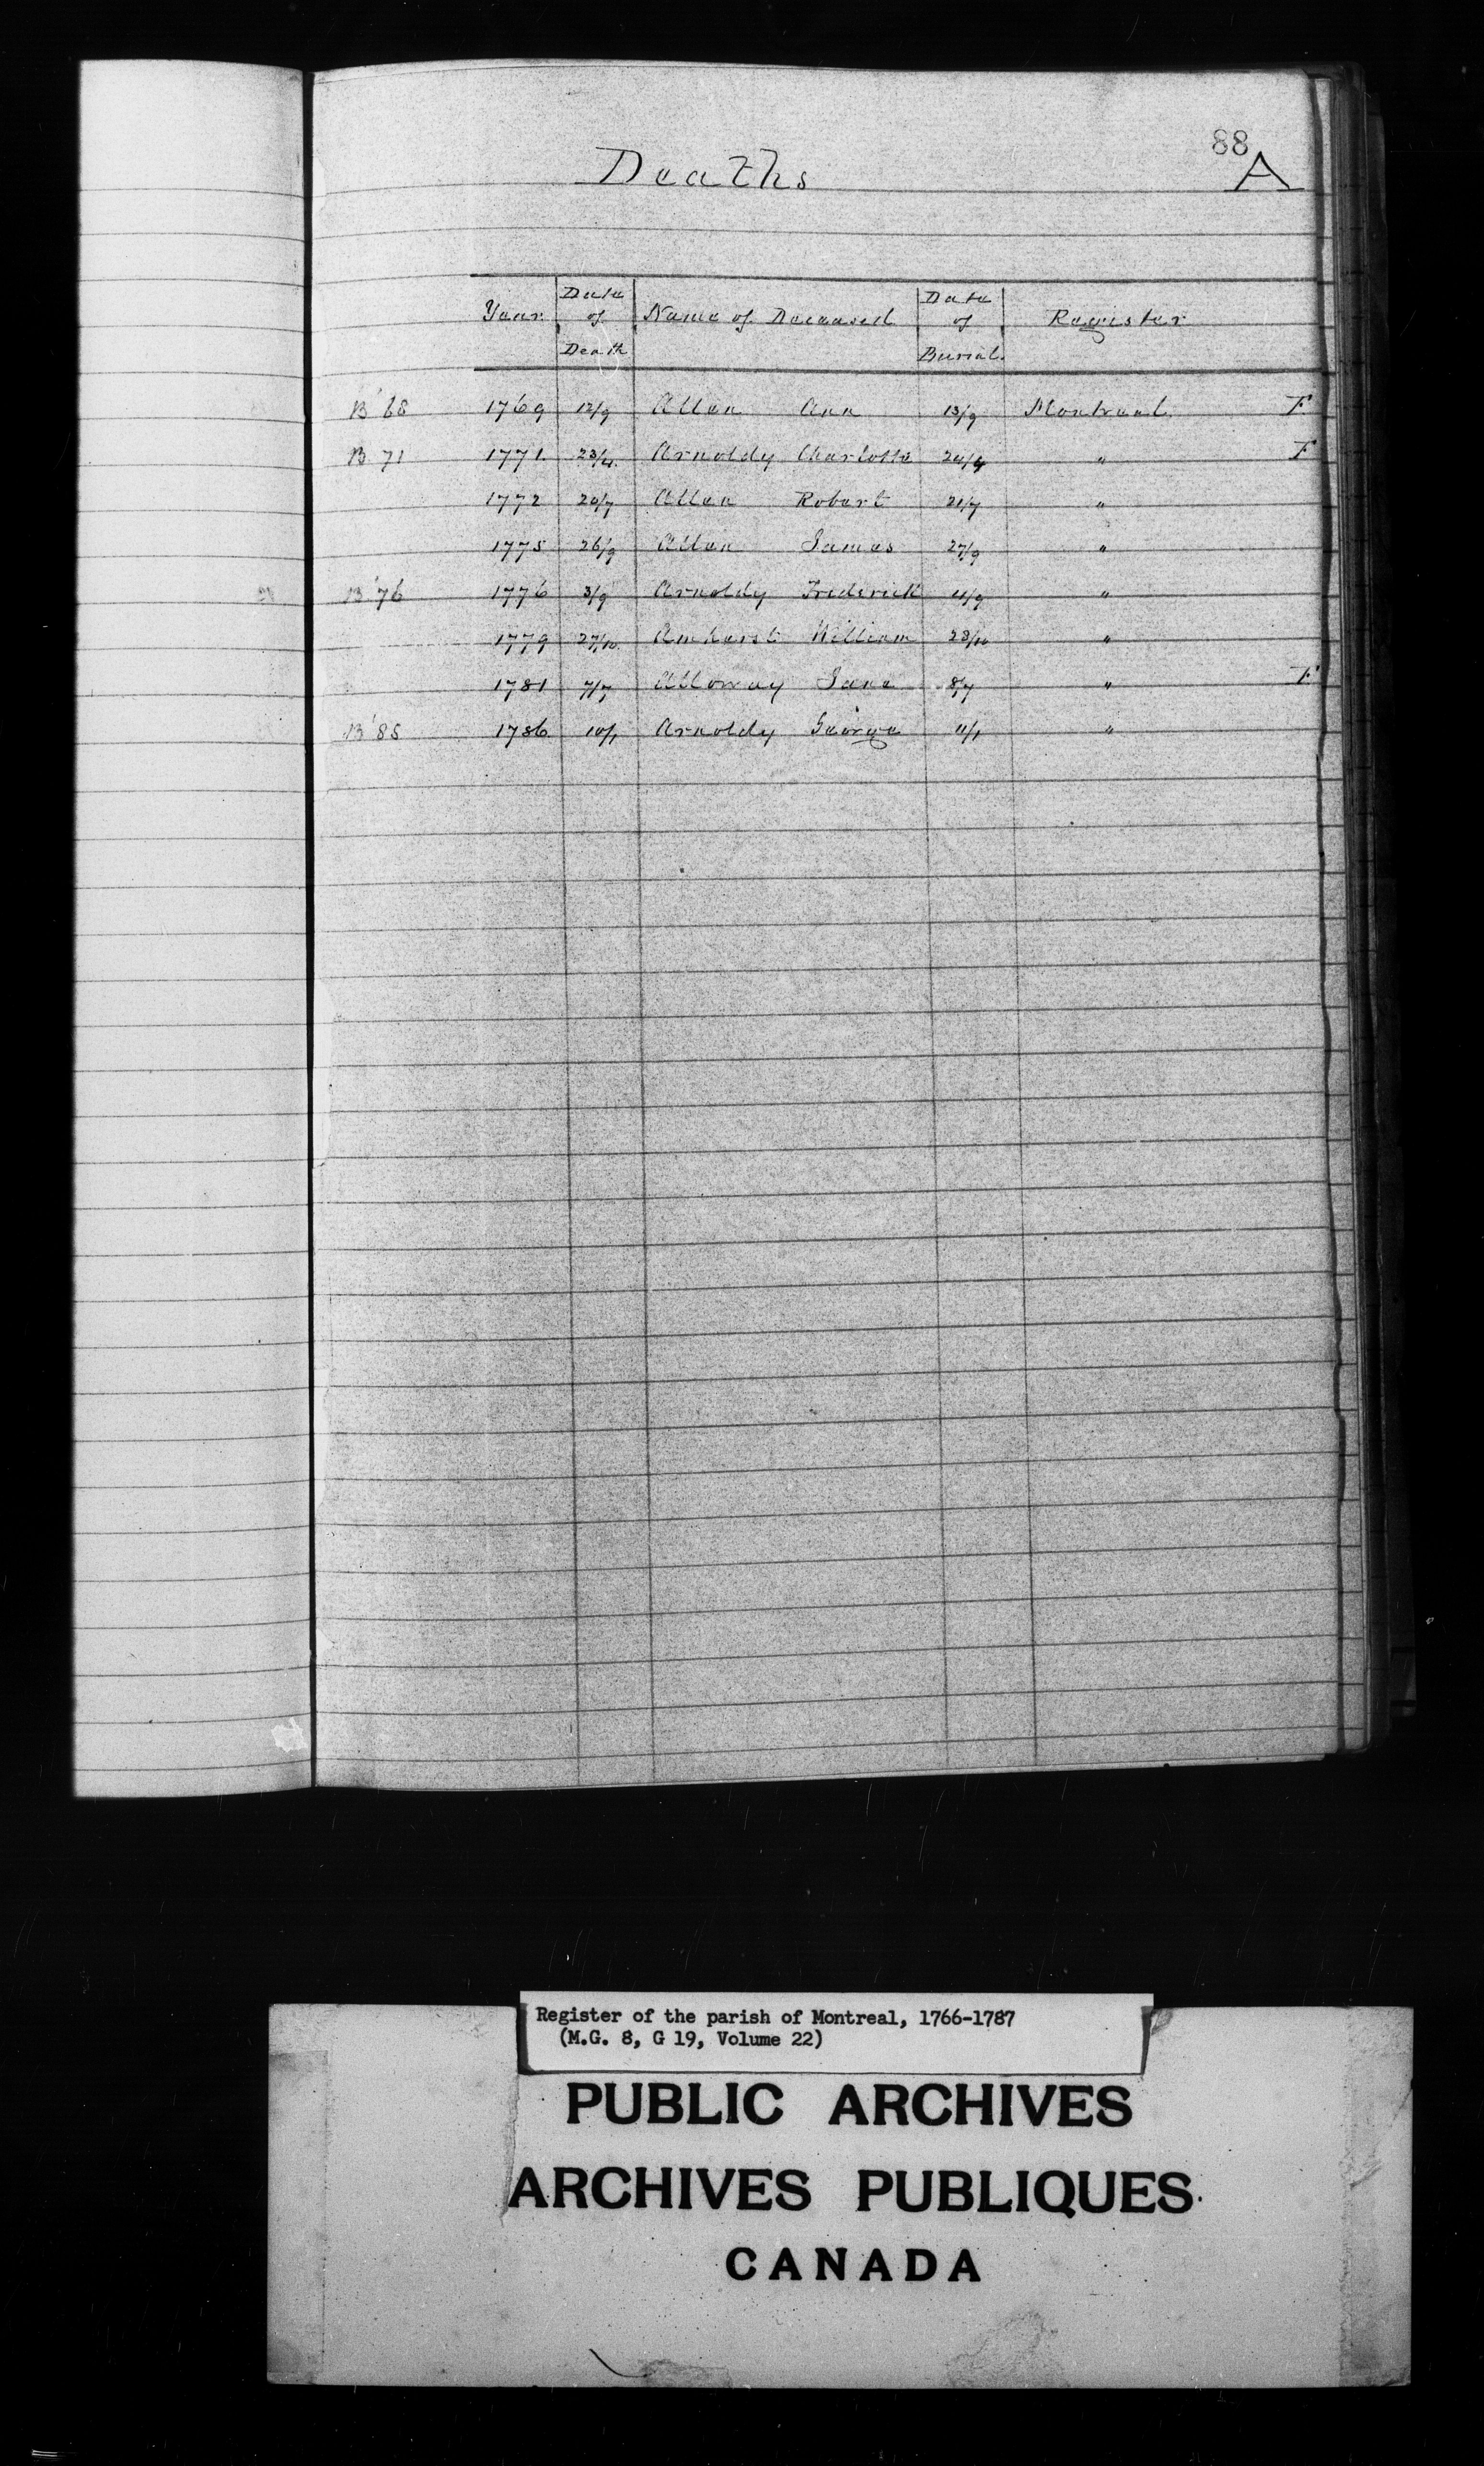 88
Deaths A
Year Date of Death Name of Deceased Date of Burial. Register
B '68 1769 12/9 Allen Ann 13/9 Montreal F
B 71 1771. 23/4. Arnoldy Charlotte 24/4 " F
1772 20/7 Allen Robert 21/7 "
1775 26/9 Allen James 27/9 "
B '76 1776 3/9 Arnoldy Frederick 4/9 "
1779 27/10. Amherst William 28/10 "
1781 7/7 Alloway Jane 8/7 " F
B '85 1786 10/1 Arnoldy George 11/1 "
Register of the parish of Montreal, 1766-1787
(M.G. 8, G 19, Volume 22)
PUBLIC ARCHIVES
ARCHIVES PUBLIQUES
CANADA